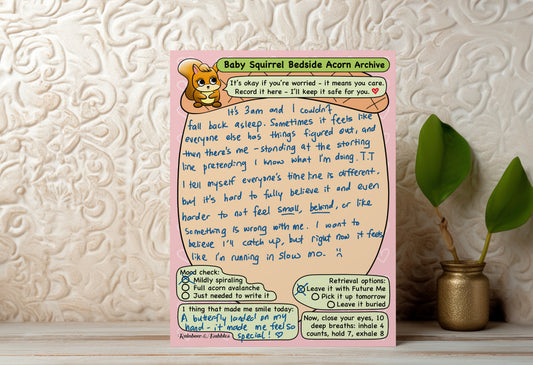 Baby Squirrel Bedside Acorn Archive
It's okay if you're worried - it means you care.
Record it here - I'll keep it safe for you.
It's 3am and I couldn't
fall back asleep. Sometimes it feels like
everyone else has things figured out, and
then there's me - standing at the starting
line pretending I know what I'm doing. T.T
I tell myself everyone's timeline is different,
but it's hard to fully believe it and even
harder to not feel small, behind, or like
something is wrong with me. I want to
believe I'll catch up, but right now it feels
like I'm running in slow mo. :(
Mood check:
Mildly spiraling
Full acorn avalanche
Just needed to write it
Retrieval options:
Leave it with Future Me
Pick it up tomorrow
Leave it buried
1 thing that made me smile today:
A butterfly landed on my
hand - it made me feel so
special!
Now, close your eyes, 10
deep breaths: inhale 4
counts, hold 7, exhale 8
Rainbow & Bubbles